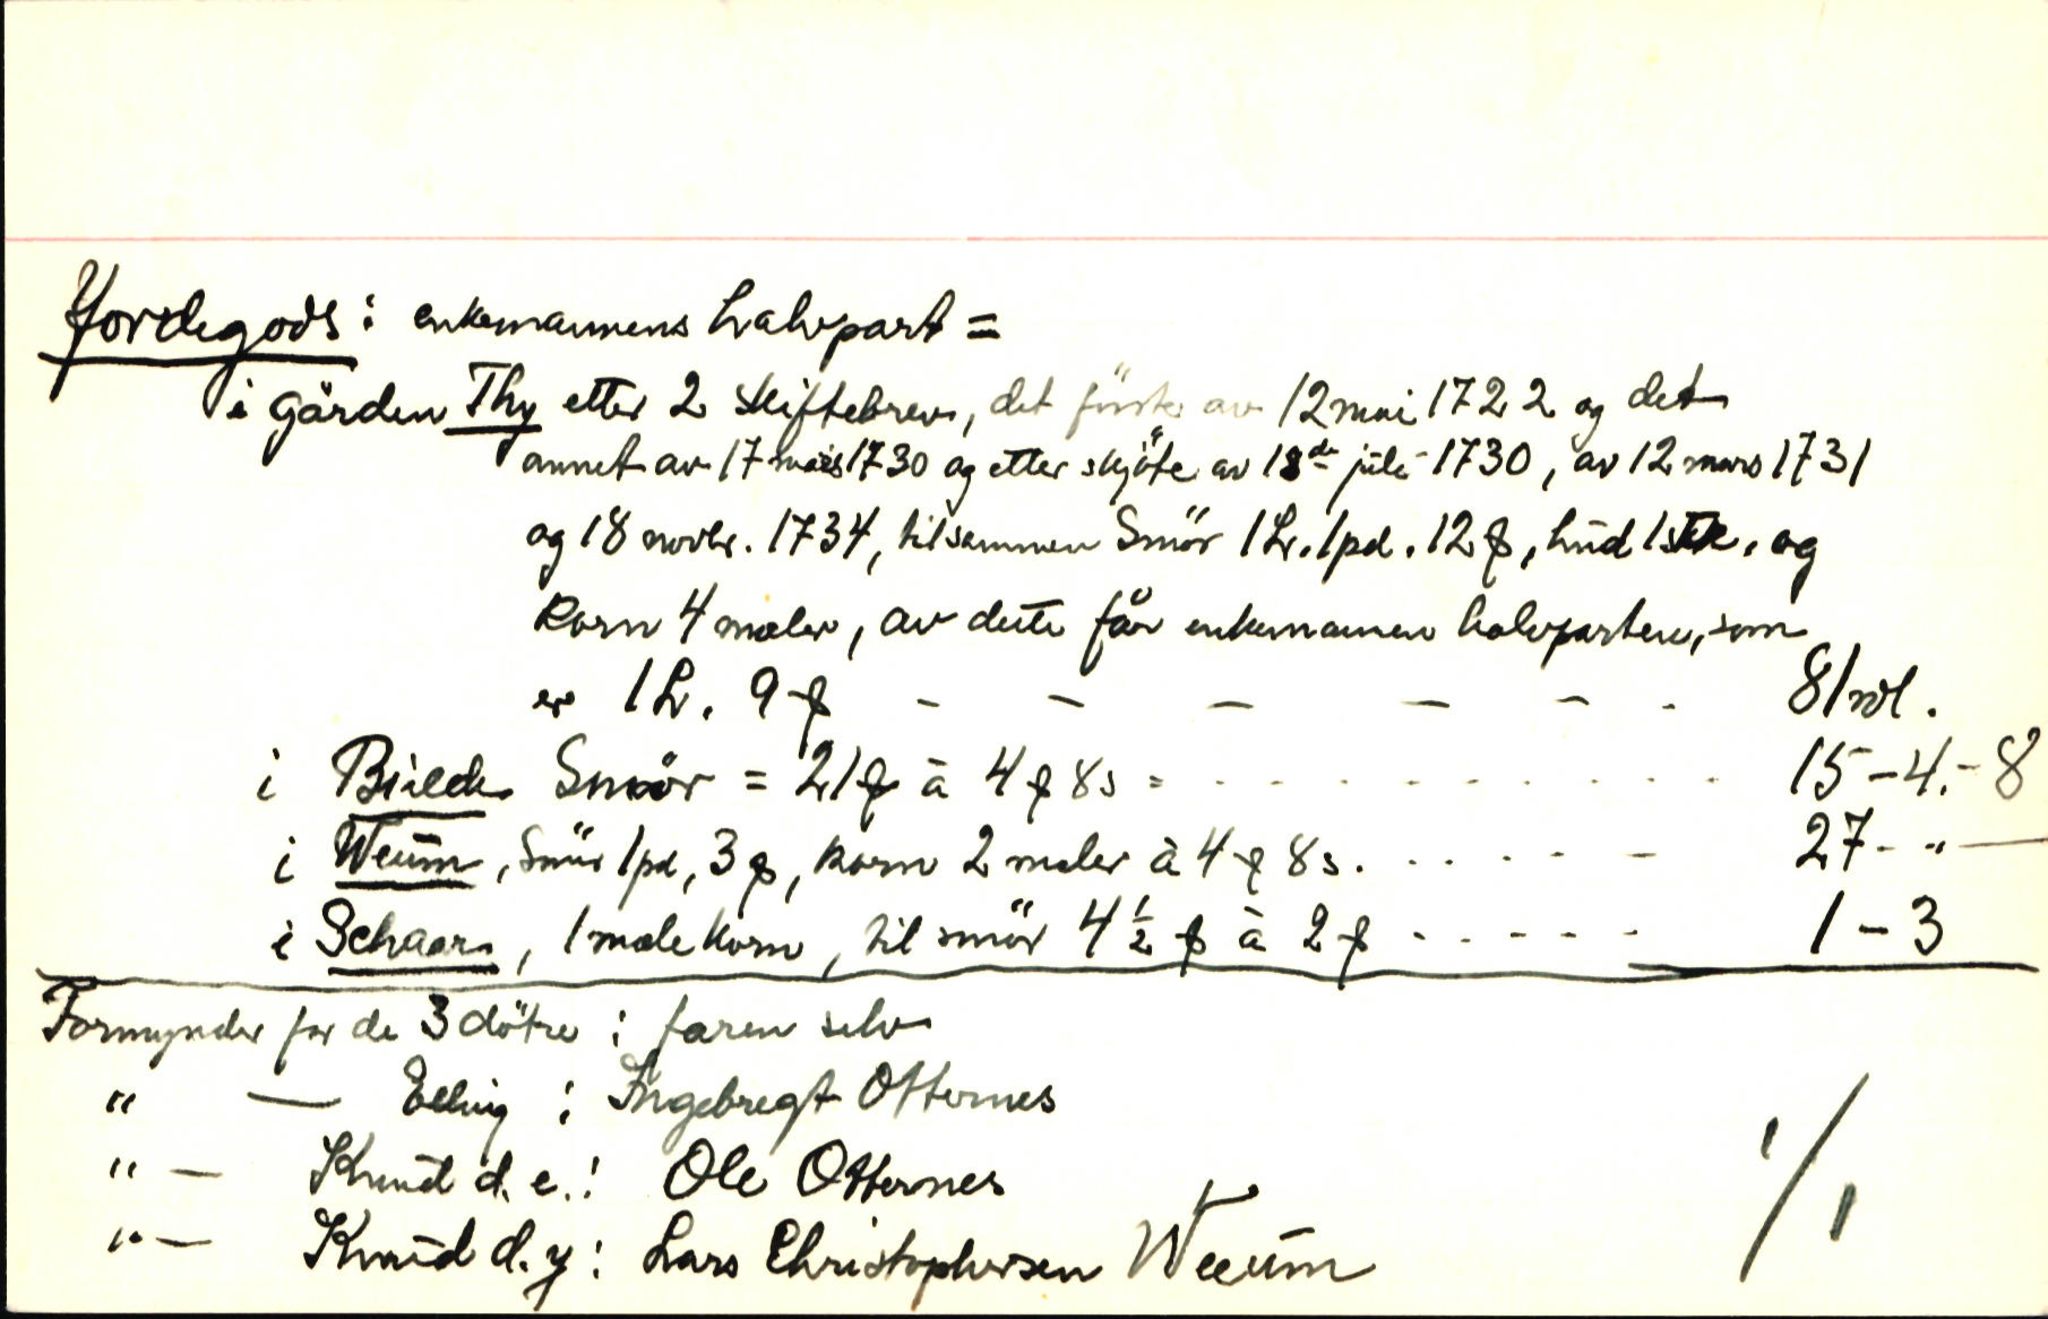 Jordegods: enkemannens halvpart =
i gården Thy etter 2 skiftebrev, det förste av 12 mai 1722 og det
annet av 17 mars 1730 og etter skjöte av 18de juli 1730, av 12 mars 1731
og 18 novbr. 1734, tilsammen Smör 1 L. 1 pd. 12 ₰, hud 1 stk. og
Korn 4 mæler, av dette får enkemannen halvparten, som
er 1 L. 9 ₰ - - - - - - 81 rdl.
i Bielde Smör = 21 ₰ à 4 ₰ 8 s = - - - - - - - - - - 15 - 4. - 8
i Weum, Smör 1 pd, 3 ₰, korn 2 mæler à 4 ₰ 8 s. - - - - - 27 - " —
i Schaar, 1 mæle korn, til smör 4 1/2 ₰ à 2 ₰ - - - - - 1 - 3
Formynder for de 3 dötre : faren selv
" — Elling : Ingebregt Otternes
" — Knud d. e. : Ole Otternes
" — Knud d. y : Lars Christophersen Weeum
1/1